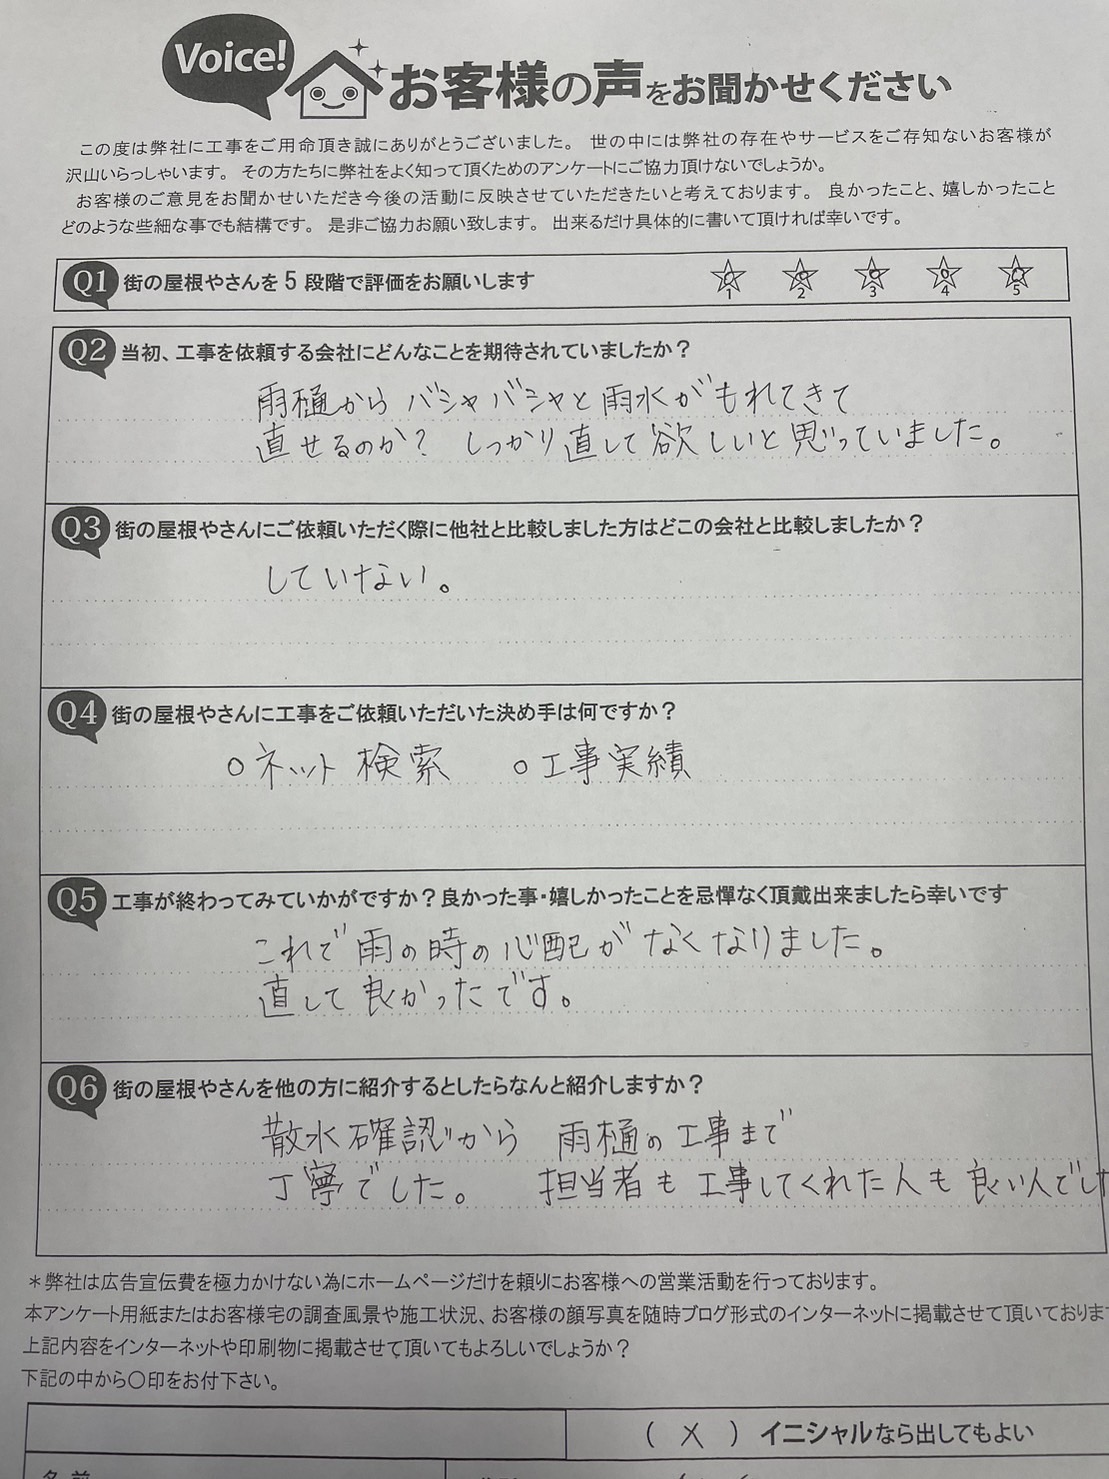 Voice!
お客様の声をお聞かせください
この度は弊社に工事をご用命頂き誠にありがとうございました。 世の中には弊社の存在やサービスをご存知ないお客様が
沢山いらっしゃいます。 その方たちに弊社をよく知って頂くためのアンケートにご協力頂けないでしょうか。
お客様のご意見をお聞かせいただき今後の活動に反映させていただきたいと考えております。 良かったこと、嬉しかったこと
どのような些細な事でも結構です。 是非ご協力お願い致します。 出来るだけ具体的に書いて頂ければ幸いです。
Q1 街の屋根やさんを5段階で評価をお願いします
1 2 3 4 5
Q2 当初、工事を依頼する会社にどんなことを期待されていましたか？
雨樋から バシャバシャと雨水がもれてきて
直せるのか？ しっかり直して欲しいと思っていました。
Q3 街の屋根やさんにご依頼いただく際に他社と比較しました方はどこの会社と比較しましたか？
していない。
Q4 街の屋根やさんに工事をご依頼いただいた決め手は何ですか？
○ネット検索 ○工事実績
Q5 工事が終わってみていかがですか？良かった事・嬉しかったことを忌憚なく頂戴出来ましたら幸いです
これで雨の時の心配がなくなりました。
直して良かったです。
Q6 街の屋根やさんを他の方に紹介するとしたらなんと紹介しますか？
散水確認から 雨樋の工事まで
丁寧でした。 担当者も工事してくれた人も良い人でした
＊弊社は広告宣伝費を極力かけない為にホームページだけを頼りにお客様への営業活動を行っております。
本アンケート用紙またはお客様宅の調査風景や施工状況、お客様の顔写真を随時ブログ形式のインターネットに掲載させて頂いております
上記内容をインターネットや印刷物に掲載させて頂いてもよろしいでしょうか？
下記の中から〇印をお付下さい。
（ × ）イニシャルなら出してもよい
名前